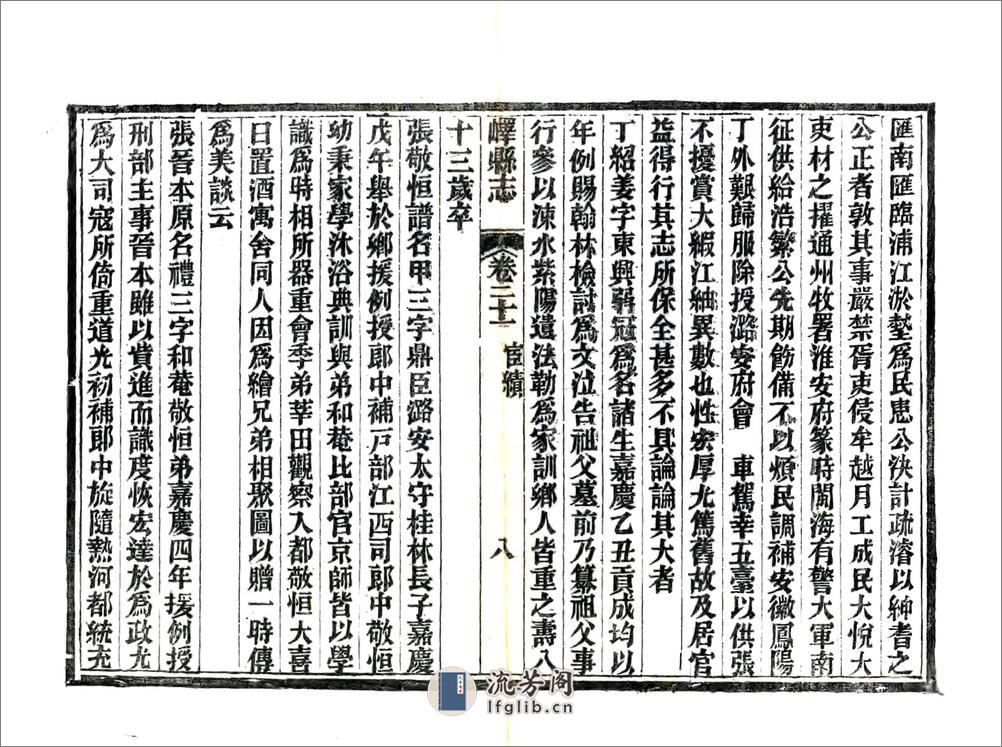 匯南匯臨浦江淤墊爲民患公決計疏濬以紳耆之
公正者敦其事嚴禁胥吏侵牟越月工成民大悅大
吏材之擢通州牧署淮安府篆時閩海有警大軍南
征供給浩繁公先期餙備不以煩民調補安徽鳳陽
丁外艱歸服除授潞安府會 車駕幸五臺以供張
不擾賞大緞江紬異數也性宏厚尤篤舊故及居官
益得行其志所保全甚多不具論論其大者
丁紹姜字東興弱冠爲名諸生嘉慶乙丑貢成均以
年例賜翰林檢討爲文泣告祖父墓前乃纂祖父事
行參以涑水紫陽遺法勒爲家訓鄉人皆重之壽八
嶧縣志 卷二十一 宦績 八
十三歲卒
張敬恒譜名甲三字鼎臣潞安太守桂林長子嘉慶
戊午舉於鄉援例授郎中補戸部江西司郎中敬恒
幼秉家學沐浴典訓與弟和菴比部官京師皆以學
識爲時相所器重會季弟莘田觀察入都敬恒大喜
日置酒寓舍同人因爲繪兄弟相聚圖以贈一時傳
爲美談云
張晉本原名禮三字和菴敬恒弟嘉慶四年援例授
刑部主事晉本雖以貲進而識度恢宏達於爲政尤
爲大司寇所倚重道光初補郎中旋隨熱河都統充
流芳阁
lfglib.cn